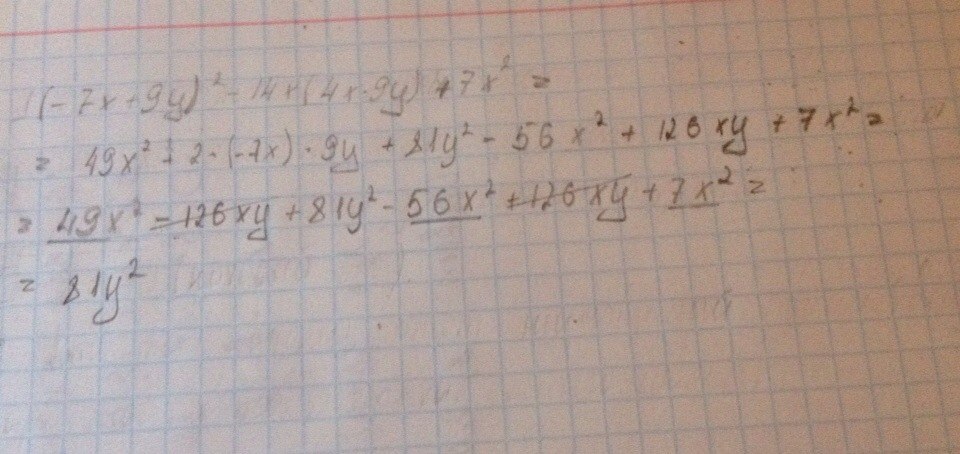 (-7x+9y)² - 14x(4x-9y)+7x² =
= 49x² + 2·(-7x)·9y + 81y² - 56x² + 126xy + 7x² =
= 49x² - 126xy + 81y² - 56x² + 126xy + 7x² =
= 81y²